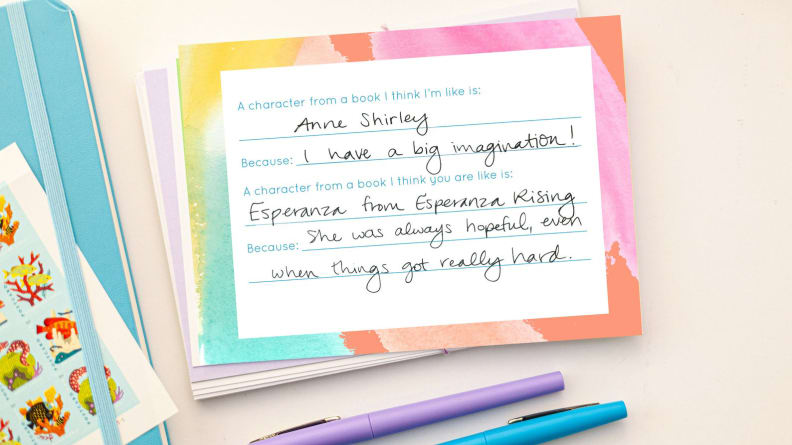 A character from a book I think I'm like is:
Anne Shirley
Because: I have a big imagination!
A character from a book I think you are like is:
Esperanza from Esperanza Rising
Because: She was always hopeful, even
when things got really hard.